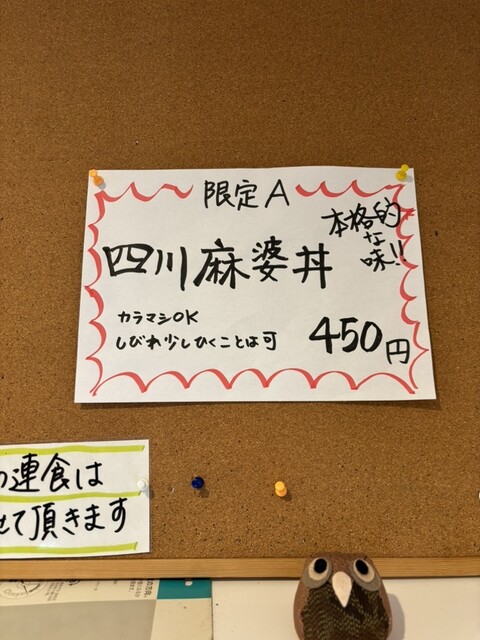 限定A
本格的
な
味!!
四川麻婆丼
カラマシOK
しびれ少しひくことは可
450円
の連食は
せて頂きます